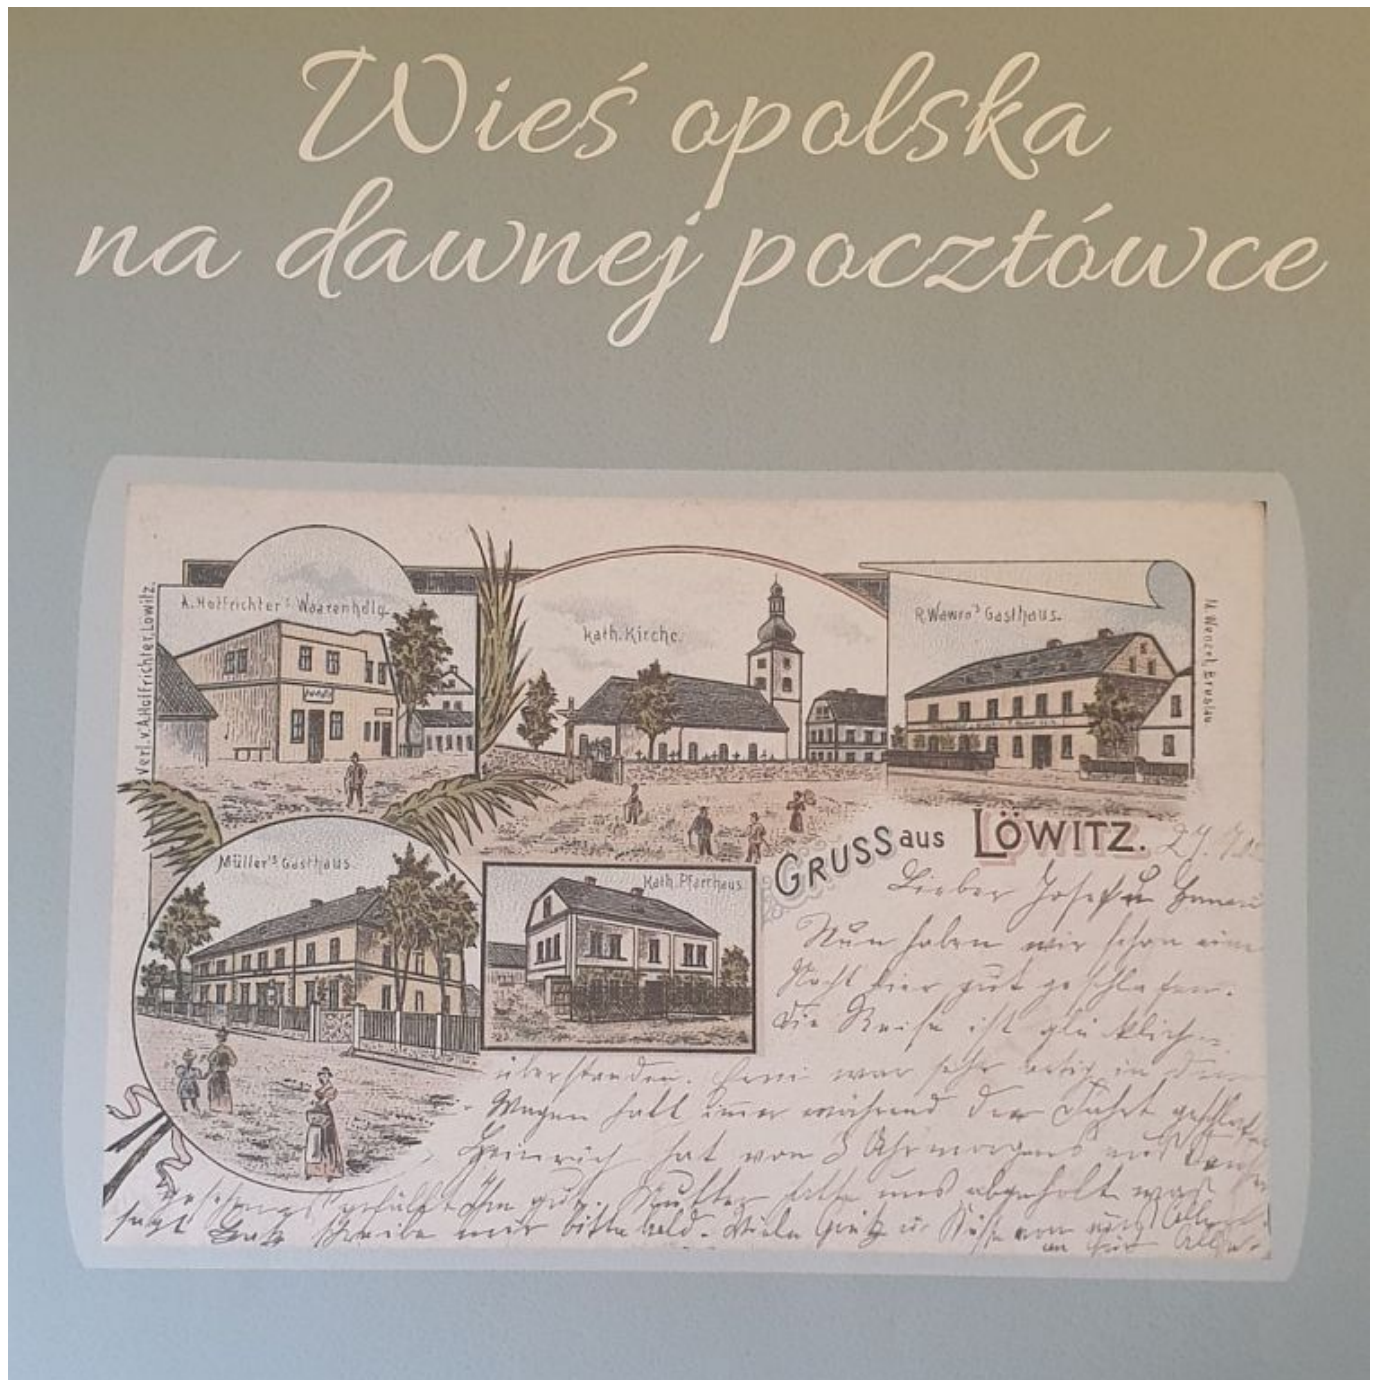 Wieś opolska
na dawnej pocztówce
Verl. v. A. Hoffrichter, Löwitz.
A. Hoffrichter's Waarenhdlg.
Kath. Kirche.
R. Wawro's Gasthaus.
M. Wenzel, Breslau
Müller's Gasthaus.
Kath. Pfarrhaus.
GRUSS aus LÖWITZ.
Lieber Josef u
Nun haben wir schon eine
Nacht hier gut geschlafen.
Die Reise ist glücklich
überstanden. war sehr artig in
Wagen hatt immer während der Fahrt geschlafen
Heinrich hat von 3 Uhr morgens
gefällt Ihm gut. Mutter hatte uns abgeholt
sagt schreibe mir bitte bald. Viele Grüße u. Küsse von uns Allen
an Alle